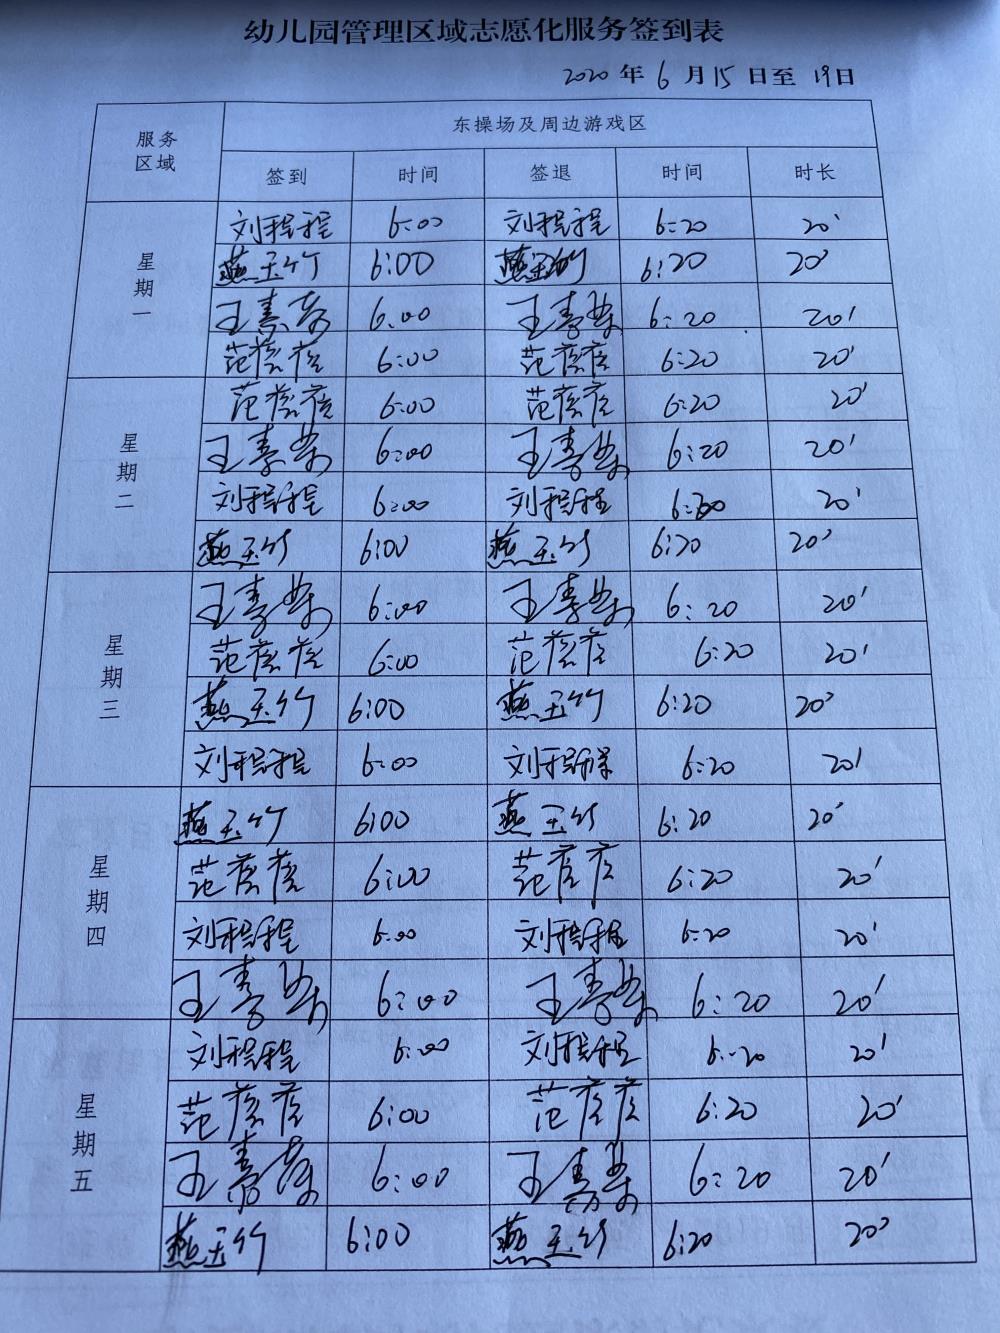 幼儿园管理区域志愿化服务签到表
2020年6月15日至19日
服务区域 东操场及周边游戏区
签到 时间 签退 时间 时长
星期一
刘程程 6:00 刘程程 6:20 20'
燕玉竹 6:00 燕玉竹 6:20 20'
王 6:00 王 6:20 20'
范 6:00 范 6:20 20'
星期二
范 6:00 范 6:20 20'
王 6:00 王 6:20 20'
刘程程 6:00 刘程程 20'
燕玉竹 6:00 燕玉竹 6:20 20'
星期三
王 6:00 王 6:20 20'
范 6:00 范 6:20 20'
燕玉竹 6:00 燕玉竹 6:20 20'
刘程程 6:00 刘程程 6:20 20'
星期四
燕玉竹 6:00 燕玉竹 6:20 20'
范 6:00 范 6:20 20'
刘程程 6:00 刘程程 6:20 20'
王 6:00 王 6:20 20'
星期五
刘程程 6:00 刘程程 6:20 20'
范 6:00 范 6:20 20'
王 6:00 王 6:20 20'
燕玉竹 6:00 燕玉竹 6:20 20'